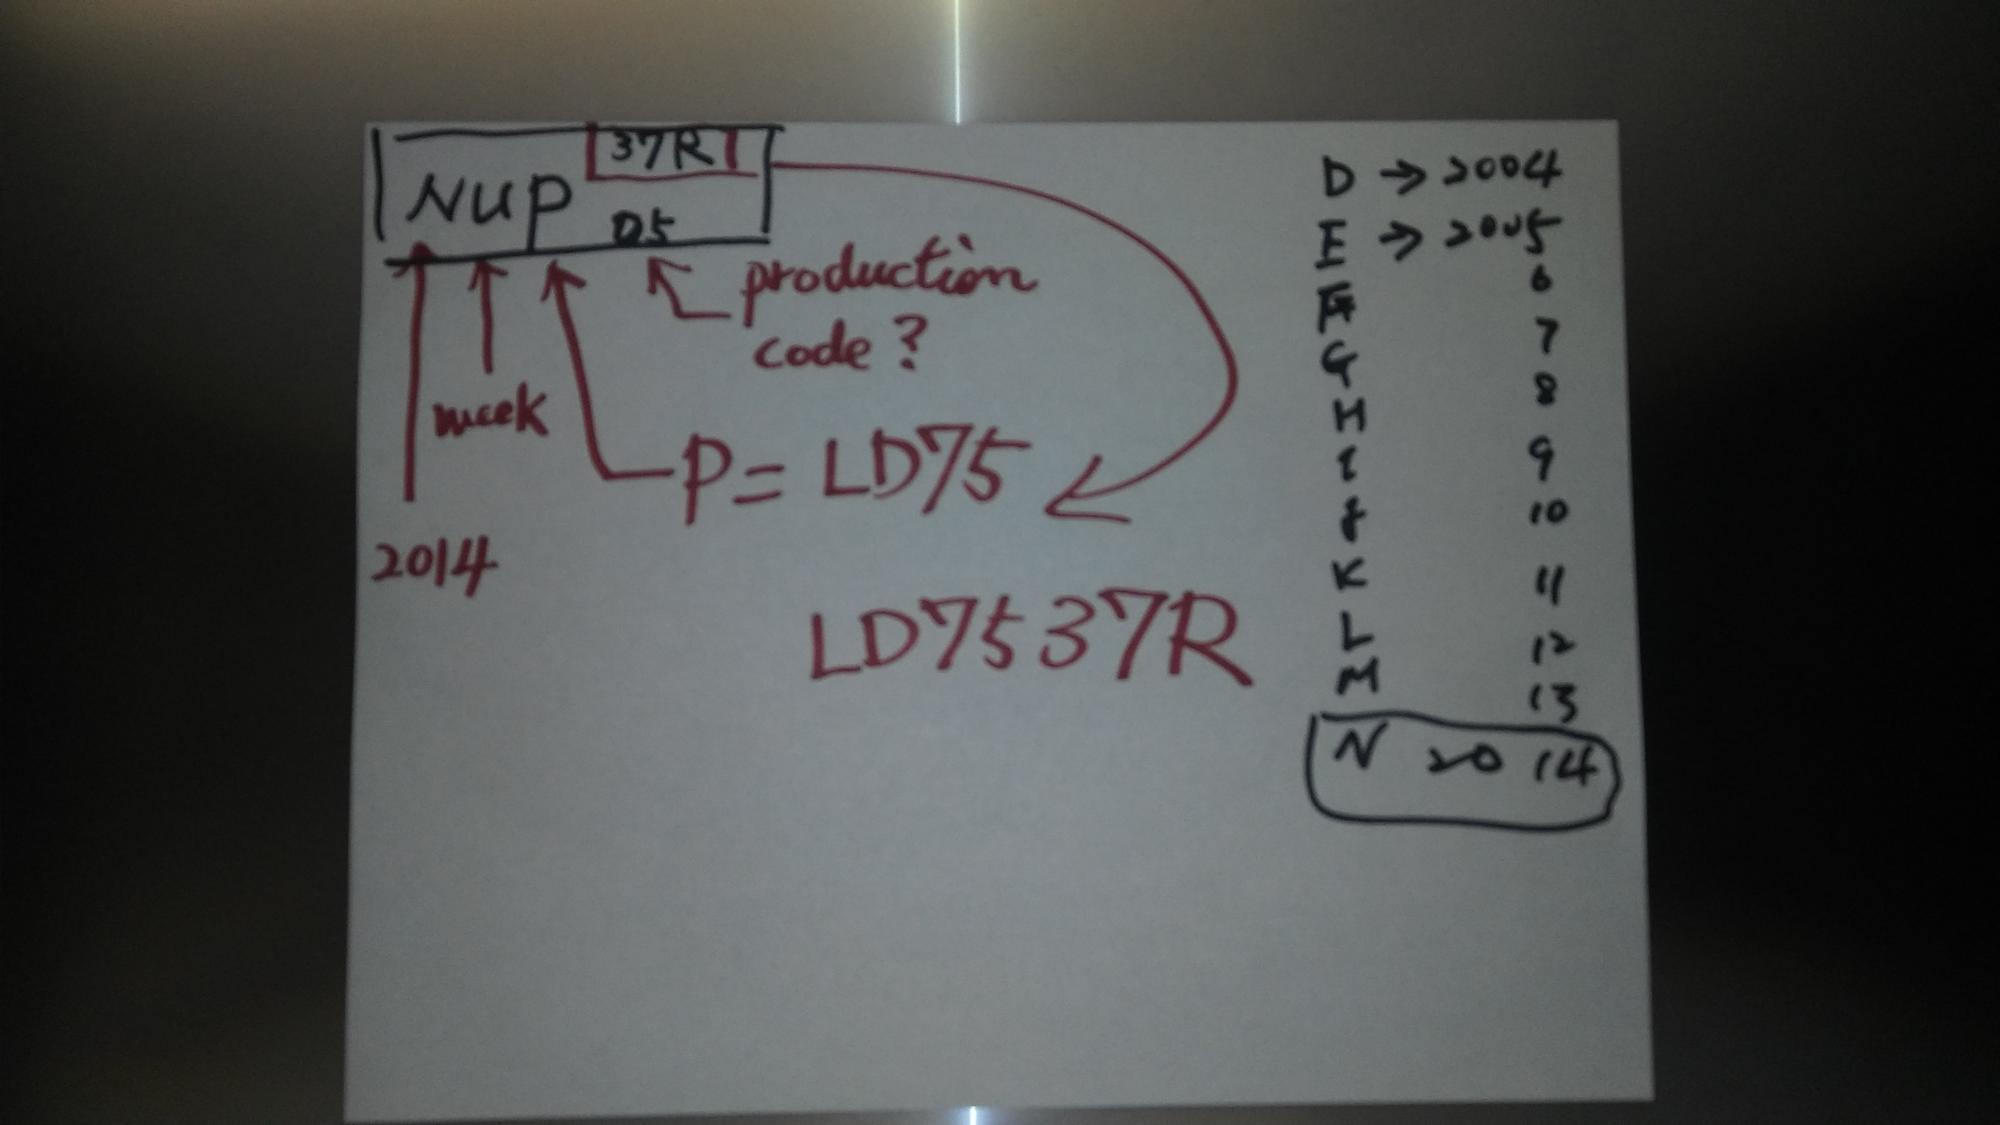 37R
NUP
D5
production
code?
week
P = LD75
2014
LD7537R
D → 2004
E → 2005
F 6
G 7
H 8
I 9
J 10
K 11
L 12
M 13
N 2014